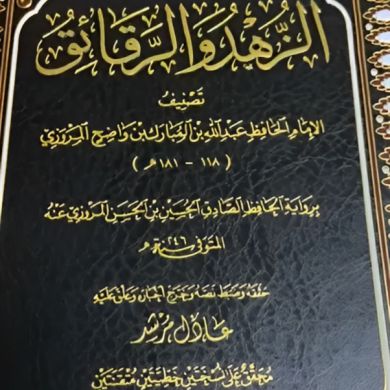 الزُّهْدُ وَالرَّقَائِقُ
تَصْنِيفُ
الإِمَامِ الحَافِظِ عَبْدِ اللهِ بْنِ المُبَارَكِ بْنِ وَاضِحِ المَرْوَزِيِّ
( ١١٨ - ١٨١ هـ )
بِرِوَايَةِ الحَافِظِ الصَّادِقِ الحُسَيْنِ بْنِ الحَسَنِ المَرْوَزِيِّ عَنْهُ
المتوفى سنة ٢٤٦ هـ
حَقَّقَهُ وَضَبَطَ نَصَّهُ وَخَرَّجَ أَخْبَارَهُ وَعَلَّقَ عَلَيْهِ
عَادِل مُرْشِد
مُحَقَّقٌ عَلَى نُسْخَتَيْنِ خَطِّيَّتَيْنِ مُتْقَنَتَيْنِ